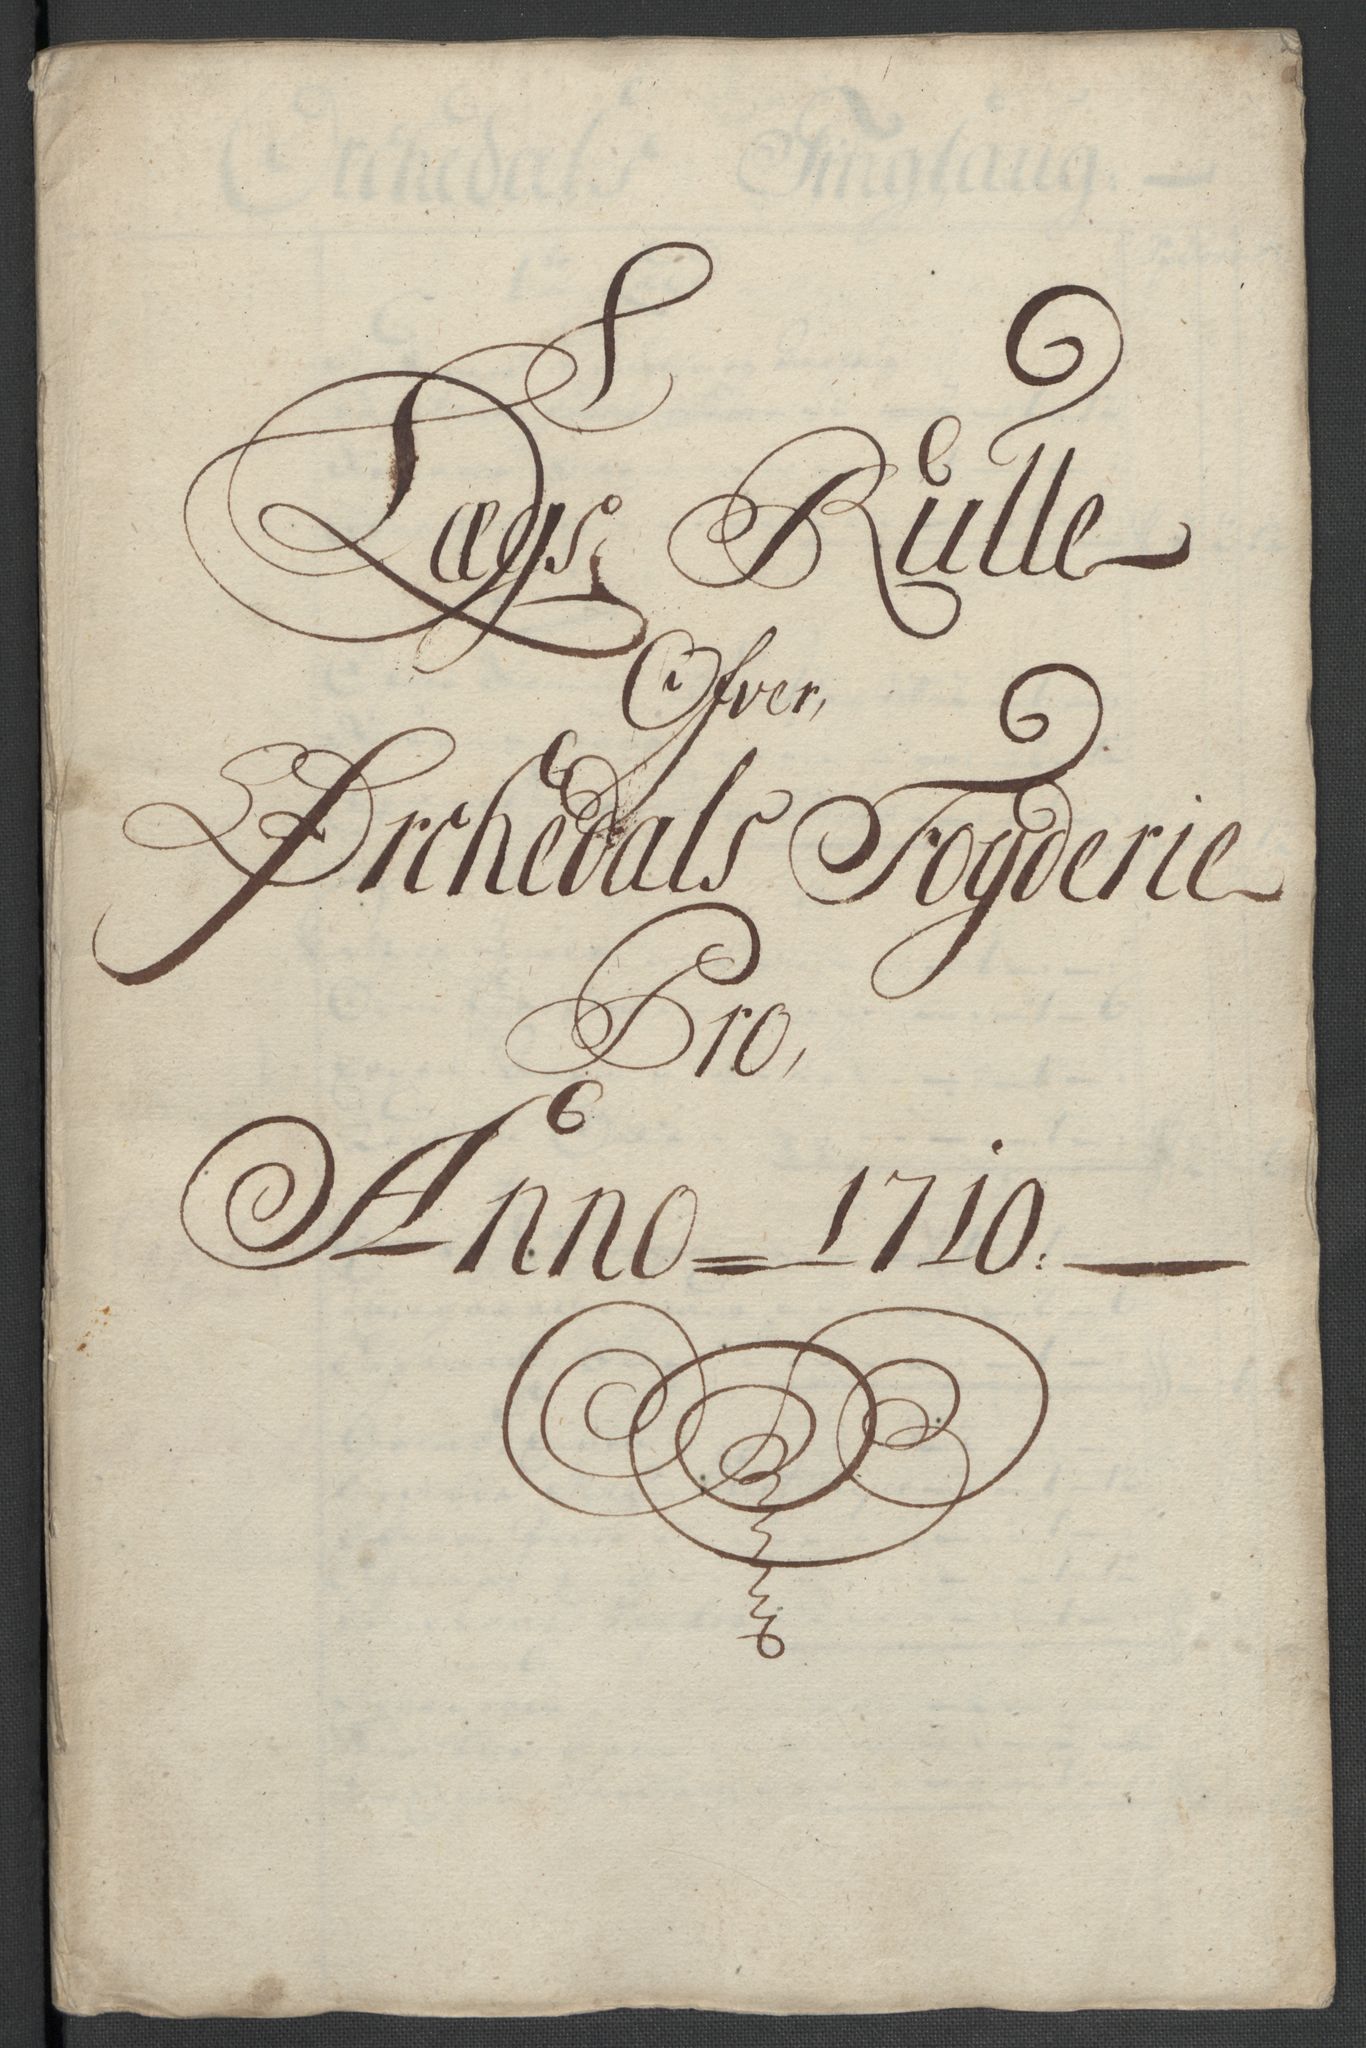 Lægs Rulle
Ofver,
Ørchedals Fogderie
Pro,
Anno = 1710.